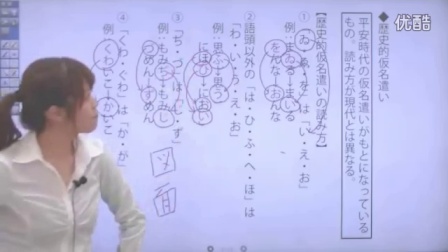 优酷
◆歴史的仮名遣い
平安時代の仮名遣いがもとになっている
もの。読み方が現代とは異なる。
【歴史的仮名遣いの読み方】
①「ゐ・ゑ・を」は「い・え・お」
例:まゐる→まいる
をんな→おんな
②語頭以外の「は・ひ・ふ・へ・ほ」は
「わ・い・う・え・お」
例:思ふ→思う
にほひ→におい
③「ぢ・づ」は「じ・ず」
例:もみぢ→もみじ
づめん→ずめん
図面
④「くわ・ぐわ」は「か・が」
例:くわいこ→かいこ